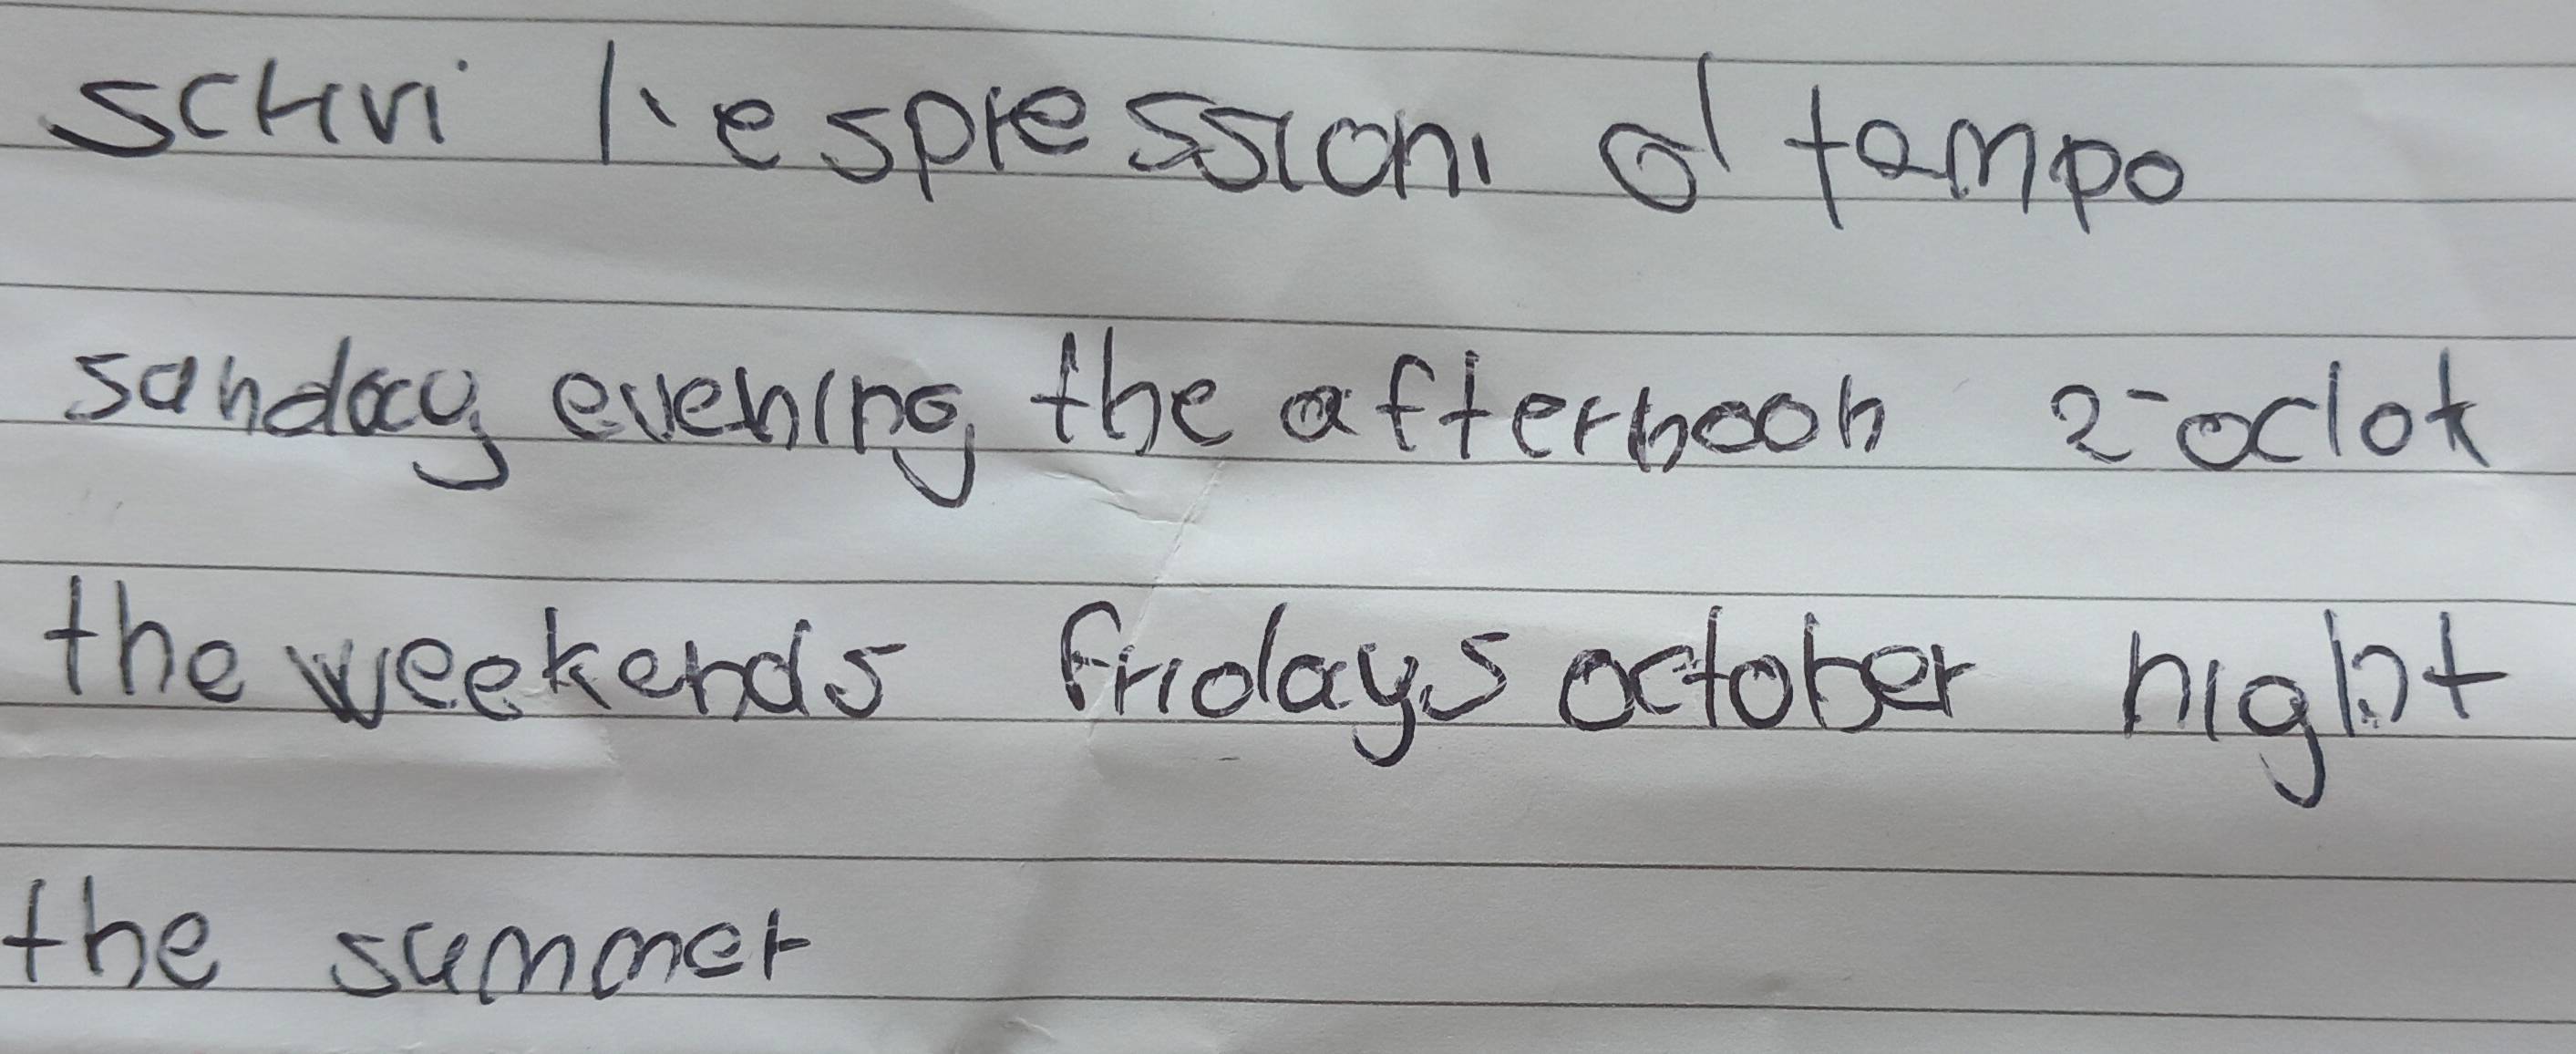 scrivi l'espressioni d tempo
sanday evening the afternoon 2-oclok
the weekends fridays october night
the summer